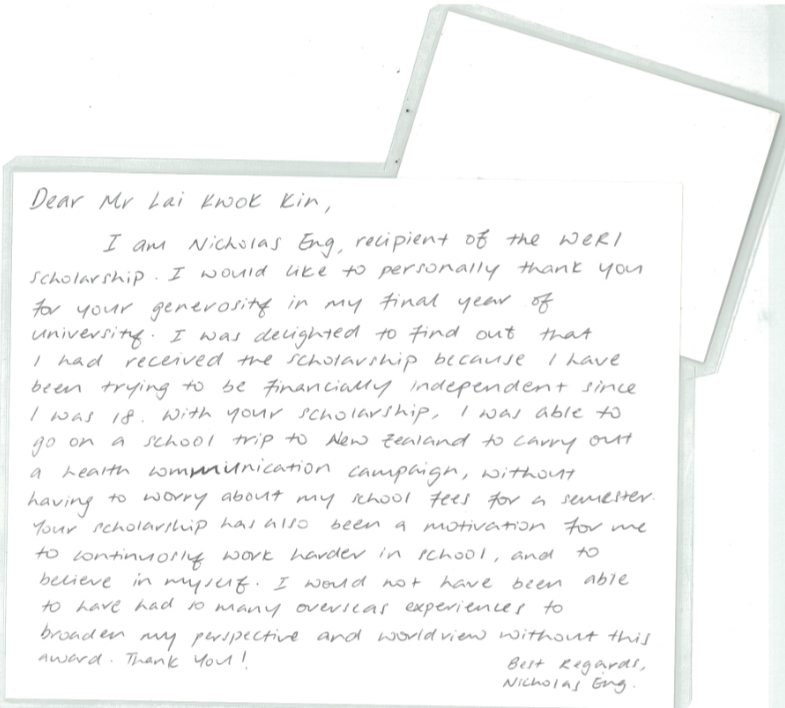 Dear Mr Lai Kwok Kin,
I am Nicholas Eng, recipient of the WeR1
scholarship. I would like to personally thank you
for your generosity in my final year of
university. I was delighted to find out that
I had received the scholarship because I have
been trying to be financially independent since
I was 18. With your scholarship, I was able to
go on a school trip to New Zealand to carry out
a health communication campaign, without
having to worry about my school fees for a semester.
Your scholarship has also been a motivation for me
to continuosly work harder in school, and to
believe in myself. I would not have been able
to have had so many overseas experiences to
broaden my perspective and worldview without this
award. Thank You!
Best Regards,
Nicholas Eng.